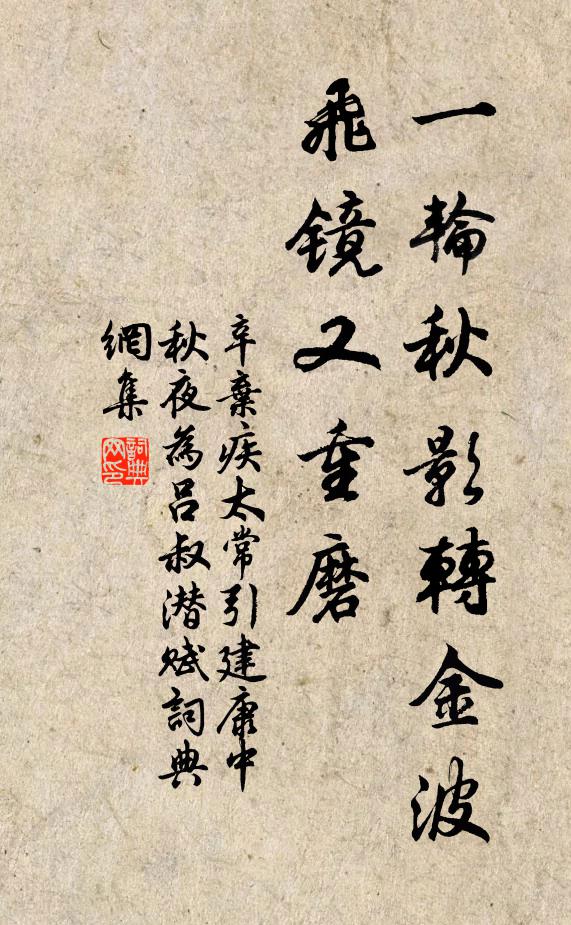 一輪秋影轉金波
飛鏡又重磨
辛棄疾太常引建康中
秋夜為吕叔潜赋詞典
網集
詞典
网印